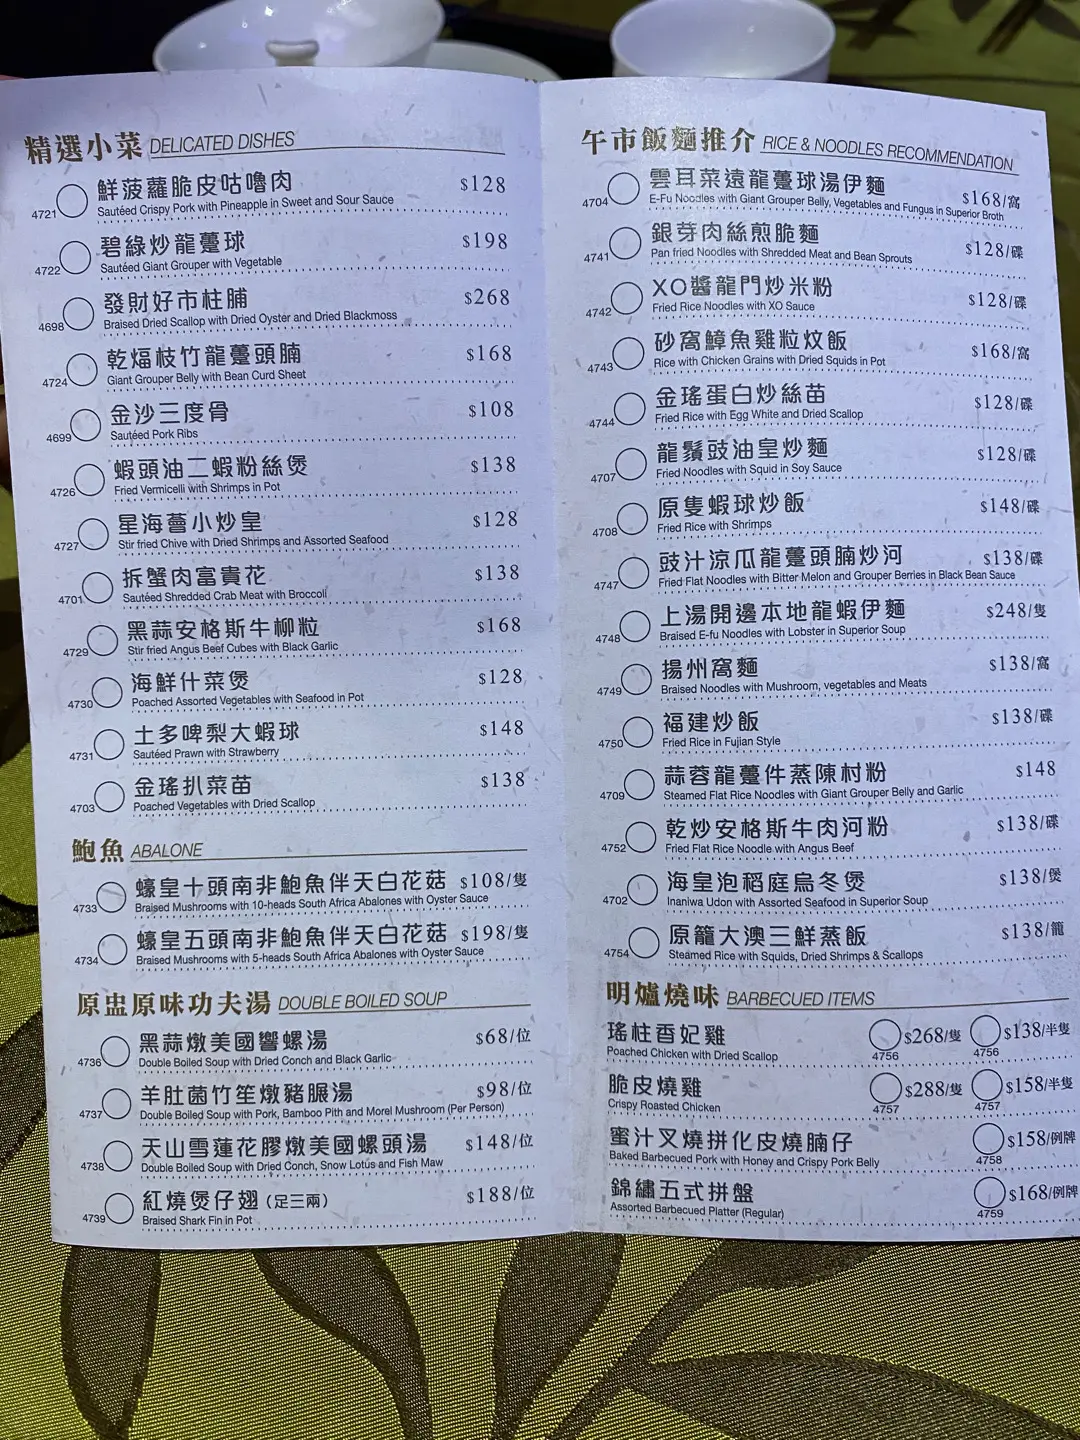 精選小菜 DELICATED DISHES
4721 鮮菠蘿脆皮咕嚕肉 $128
Sautéed Crispy Pork with Pineapple in Sweet and Sour Sauce
4722 碧綠炒龍躉球 $198
Sautéed Giant Grouper with Vegetable
4698 發財好市柱脯 $268
Braised Dried Scallop with Dried Oyster and Dried Blackmoss
4724 乾煏枝竹龍躉頭腩 $168
Giant Grouper Belly with Bean Curd Sheet
4699 金沙三度骨 $108
Sautéed Pork Ribs
4726 蝦頭油二蝦粉絲煲 $138
Fried Vermicelli with Shrimps in Pot
4727 星海薈小炒皇 $128
Stir fried Chive with Dried Shrimps and Assorted Seafood
4701 拆蟹肉富貴花 $138
Sautéed Shredded Crab Meat with Broccoli
4729 黑蒜安格斯牛柳粒 $168
Stir fried Angus Beef Cubes with Black Garlic
4730 海鮮什菜煲 $128
Poached Assorted Vegetables with Seafood in Pot
4731 士多啤梨大蝦球 $148
Sautéed Prawn with Strawberry
4703 金瑤扒菜苗 $138
Poached Vegetables with Dried Scallop
鮑魚 ABALONE
4733 蠔皇十頭南非鮑魚伴天白花菇 $108/隻
Braised Mushrooms with 10-heads South Africa Abalones with Oyster Sauce
4734 蠔皇五頭南非鮑魚伴天白花菇 $198/隻
Braised Mushrooms with 5-heads South Africa Abalones with Oyster Sauce
原盅原味功夫湯 DOUBLE BOILED SOUP
4736 黑蒜燉美國響螺湯 $68/位
Double Boiled Soup with Dried Conch and Black Garlic
4737 羊肚菌竹笙燉豬腒湯 $98/位
Double Boiled Soup with Pork, Bamboo Pith and Morel Mushroom (Per Person)
4738 天山雪蓮花膠燉美國螺頭湯 $148/位
Double Boiled Soup with Dried Conch, Snow Lotus and Fish Maw
4739 紅燒煲仔翅（足三兩） $188/位
Braised Shark Fin in Pot
午市飯麵推介 RICE & NOODLES RECOMMENDATION
4704 雲耳菜遠龍躉球湯伊麵 $168/窩
E-Fu Noodles with Giant Grouper Belly, Vegetables and Fungus in Superior Broth
4741 銀芽肉絲煎脆麵 $128/碟
Pan fried Noodles with Shredded Meat and Bean Sprouts
4742 XO醬龍門炒米粉 $128/碟
Fried Rice Noodles with XO Sauce
4743 砂窩鱆魚雞粒炆飯 $168/窩
Rice with Chicken Grains with Dried Squids in Pot
4744 金瑤蛋白炒絲苗 $128/碟
Fried Rice with Egg White and Dried Scallop
4707 龍鬚豉油皇炒麵 $128/碟
Fried Noodles with Squid in Soy Sauce
4708 原隻蝦球炒飯 $148/碟
Fried Rice with Shrimps
4747 豉汁涼瓜龍躉頭腩炒河 $138/碟
Fried Flat Noodles with Bitter Melon and Grouper Berries in Black Bean Sauce
4748 上湯開邊本地龍蝦伊麵 $248/隻
Braised E-fu Noodles with Lobster in Superior Soup
4749 揚州窩麵 $138/窩
Braised Noodles with Mushroom, vegetables and Meats
4750 福建炒飯 $138/碟
Fried Rice in Fujian Style
4709 蒜蓉龍躉件蒸陳村粉 $148
Steamed Flat Rice Noodles with Giant Grouper Belly and Garlic
4752 乾炒安格斯牛肉河粉 $138/碟
Fried Flat Rice Noodle with Angus Beef
4702 海皇泡稻庭烏冬煲 $138/煲
Inaniwa Udon with Assorted Seafood in Superior Soup
4754 原籠大澳三鮮蒸飯 $138/籠
Steamed Rice with Squids, Dried Shrimps & Scallops
明爐燒味 BARBECUED ITEMS
瑤柱香妃雞 4756 $268/隻 4756 $138/半隻
Poached Chicken with Dried Scallop
脆皮燒雞 4757 $288/隻 4757 $158/半隻
Crispy Roasted Chicken
蜜汁叉燒拼化皮燒腩仔 4758 $158/例牌
Baked Barbecued Pork with Honey and Crispy Pork Belly
錦繡五式拼盤 4759 $168/例牌
Assorted Barbecued Platter (Regular)